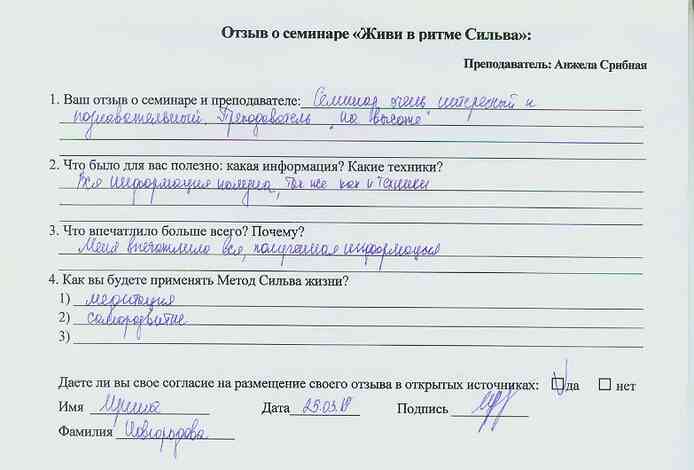 Отзыв о семинаре «Живи в ритме Сильва»:
Преподаватель: Анжела Срибная
1. Ваш отзыв о семинаре и преподавателе: Семинар очень интересный и
познавательный. Преподаватель „на высоте"
2. Что было для вас полезно: какая информация? Какие техники?
Вся информация полезна, так же как и техники
3. Что впечатлило больше всего? Почему?
Меня впечатлило вся, полученная информация
4. Как вы будете применять Метод Сильва жизни?
1) медитация
2) саморазвитие
3)
Даете ли вы свое согласие на размещение своего отзыва в открытых источниках: да нет
Имя Ирина Дата 25.03.18 Подпись
Фамилия Новгородова